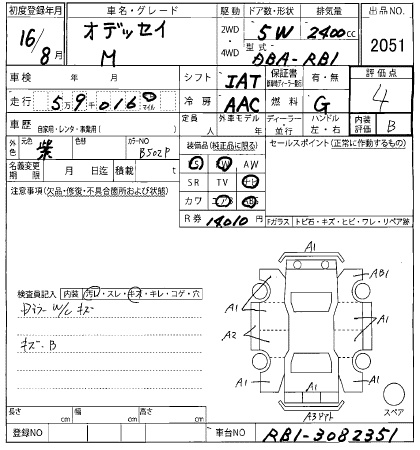 初度登録年月 車名・グレード 駆動 ドア数・形状 排気量 出品NO.
16/8月 オデッセイ M 2WD・4WD 5W 2400cc 2051
型式 DBA-RB1
車検 年 月 シフト IAT 保証書 有・無 評価点 4
走行 5万9千016 マイル 冷房 AAC 燃料 G
車歴 自家用・レンタ・事業用( ) 定員 人 外車モデル 年 ディーラー 並行 ハンドル 左・右 内装評価 B
外色 元色 紫 色替 カラーNO B502P 装備品(純正品に限る) セールスポイント(正常に作動するもの)
名義変更期限 月 日迄 積載 t PS PW AW
注意事項(欠品・修復・不具合箇所および状態) SR TV ナビ
カワ エアB ABS
R券 14010円 Fガラス トビ石・キズ・ヒビ・ワレ・リペア跡
A1
A1 AB1
検査員記入 内装 汚レ・スレ・キズ・キレ・コゲ・穴
A1 A1
W/C キズ
A2
キズ・B
A1 A1
A1
長さ cm 幅 cm 高さ cm
A3アト スペア
登録NO 車台NO. RB1-3082351